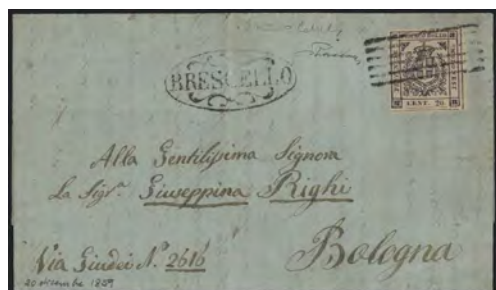 BRESCELLO
CENT. 20
Alla Gentilissima Signora
La Sigra. Giuseppina Righi
Via Giudei N. 2616
Bologna
20 dicembre 1859